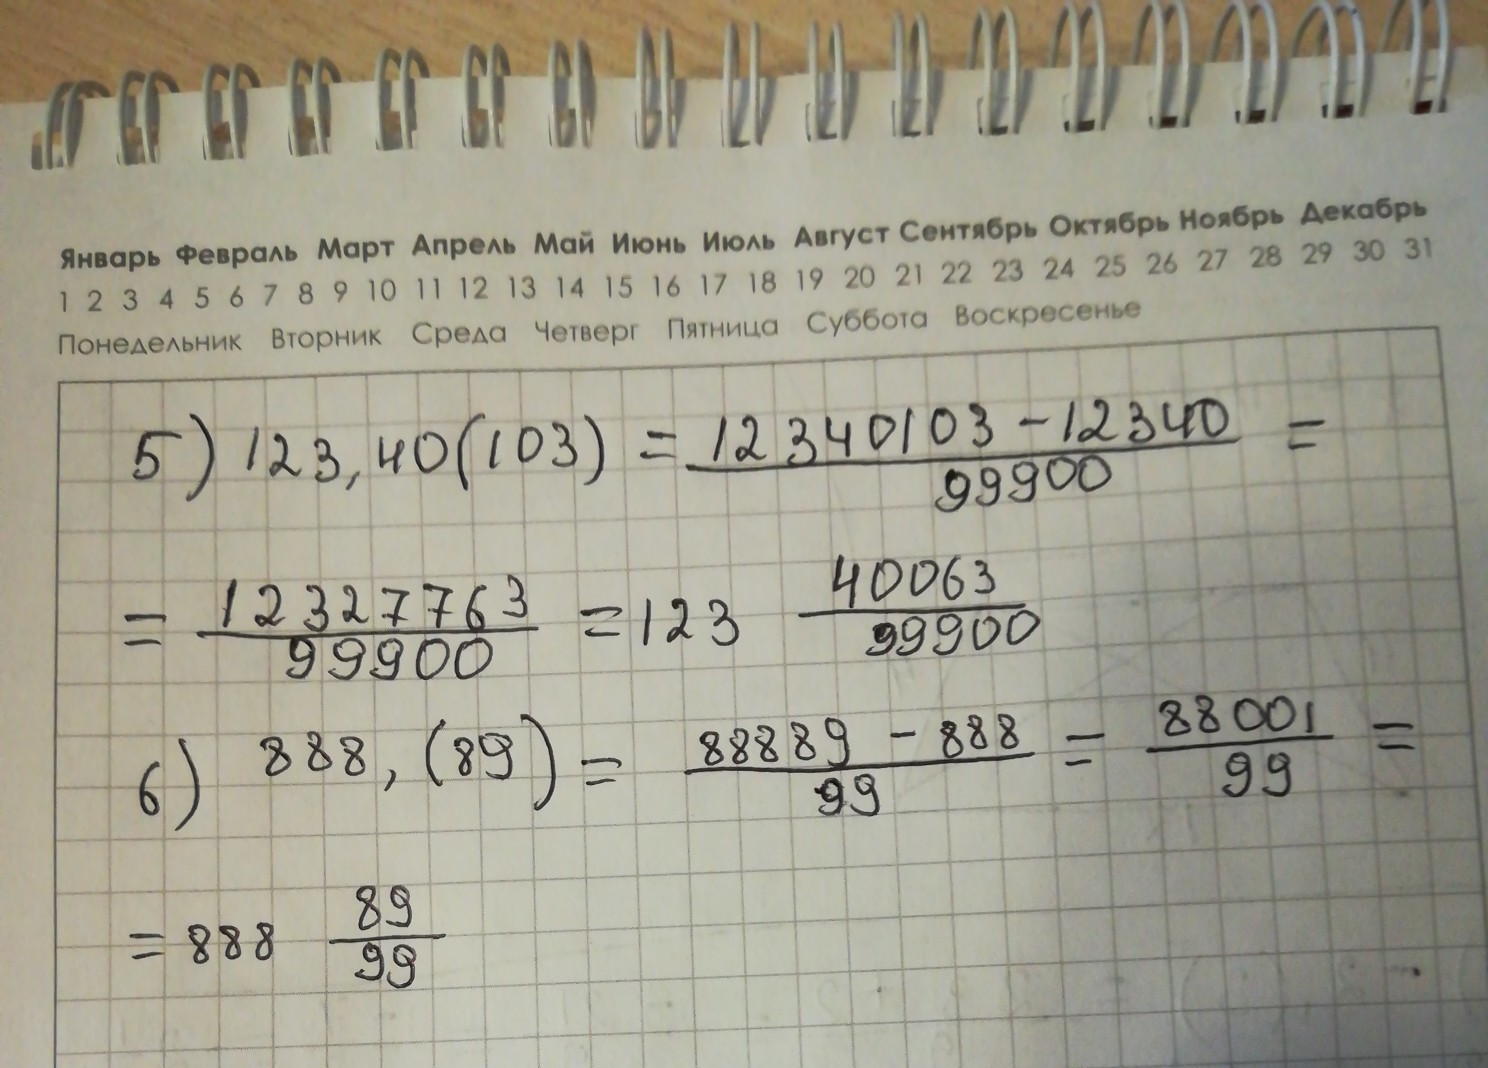 Январь Февраль Март Апрель Май Июнь Июль Август Сентябрь Октябрь Ноябрь Декабрь
1 2 3 4 5 6 7 8 9 10 11 12 13 14 15 16 17 18 19 20 21 22 23 24 25 26 27 28 29 30 31
Понедельник Вторник Среда Четверг Пятница Суббота Воскресенье
5) 123,40(103) = 12340103 - 12340 / 99900 =
= 12327763 / 99900 = 123 40063 / 99900
6) 888,(89) = 88889 - 888 / 99 = 88001 / 99 =
= 888 89 / 99